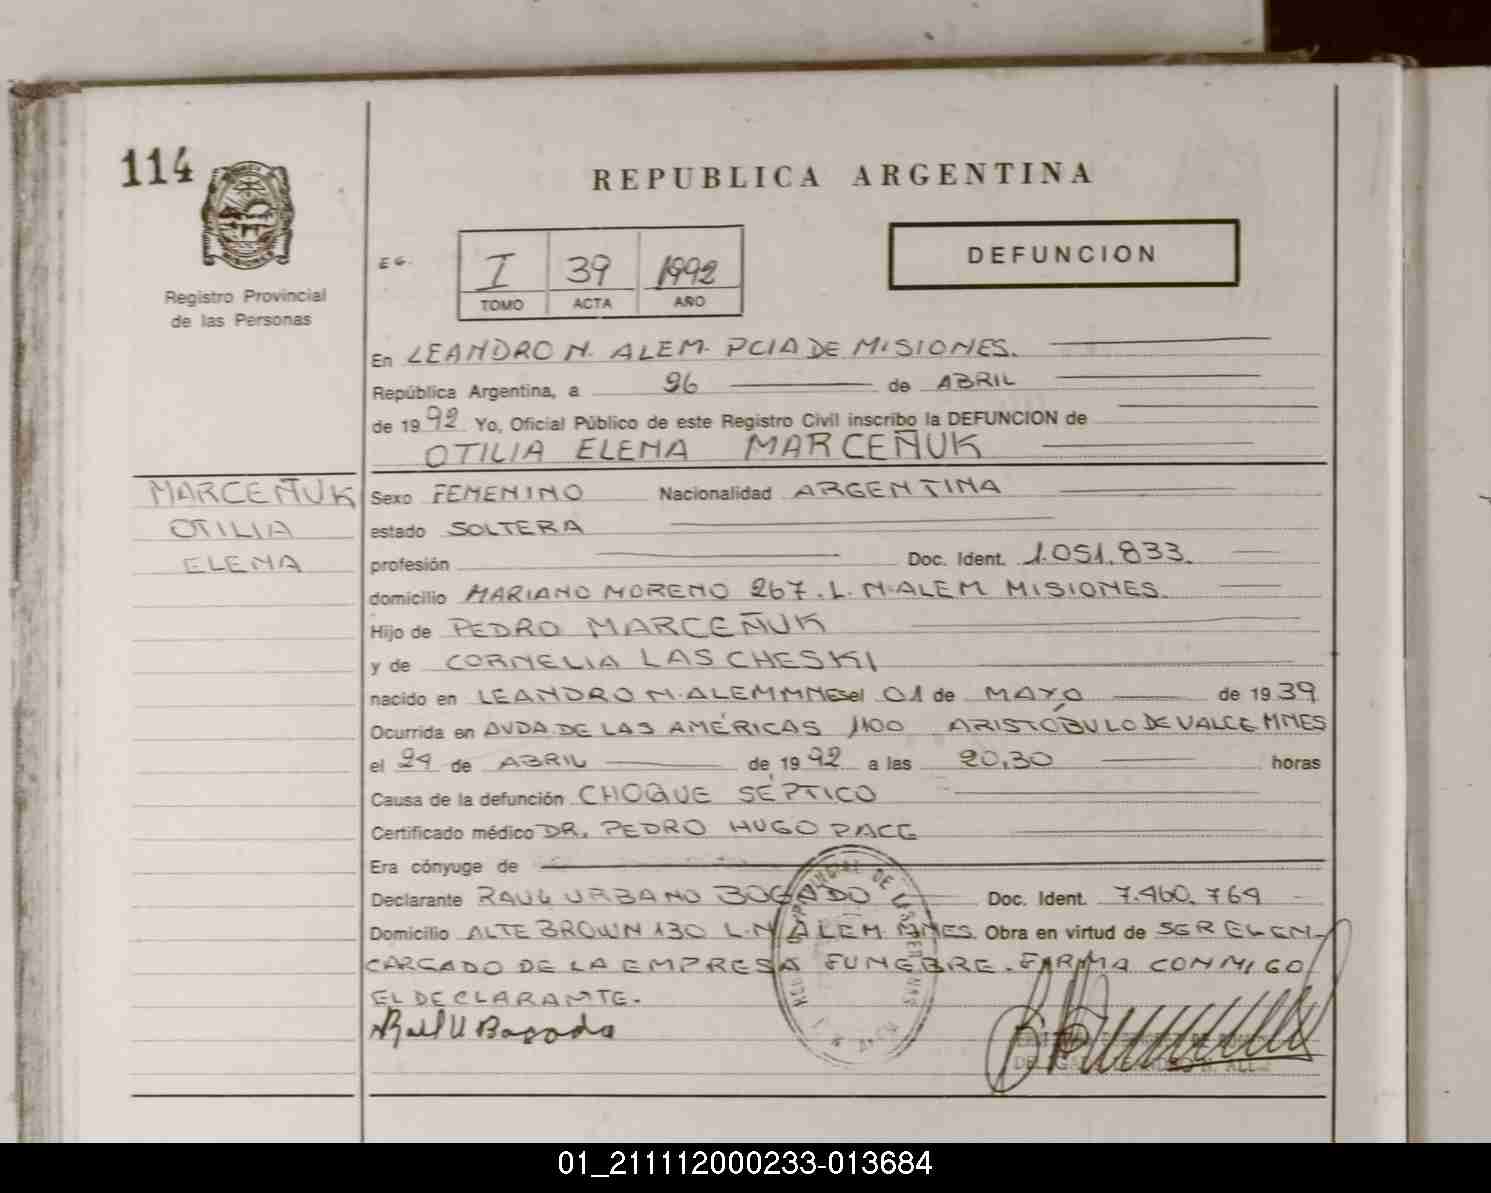 114
REPUBLICA ARGENTINA
DEFUNCION
EG.
I 39 1992
TOMO ACTA AÑO
Registro Provincial
de las Personas
En LEANDRO N. ALEM. PCIA DE MISIONES.
República Argentina, a 26 de ABRIL
de 1992 Yo, Oficial Público de este Registro Civil inscribo la DEFUNCION de
OTILIA ELENA MARCEÑUK
MARCEÑUK
OTILIA
ELENA
Sexo FEMENINO Nacionalidad ARGENTINA
estado SOLTERA
profesión Doc. Ident. 1.051.833.
domicilio MARIANO MORENO 267. L. N. ALEM MISIONES.
Hijo de PEDRO MARCEÑUK
y de CORNELIA LASCHESKI
nacido en LEANDRO N. ALEM MNES el 01 de MAYO de 1939
Ocurrida en AVDA. DE LAS AMÉRICAS 1100 ARISTÓBULO DE VALLE MNES
el 24 de ABRIL de 1992 a las 20,30 horas
Causa de la defunción CHOQUE SÉPTICO
Certificado médico DR. PEDRO HUGO PACE
Era cónyuge de
Declarante RAUL URBANO BOGADO Doc. Ident. 7.460.764
Domicilio ALTE BROWN 130 L. N. ALEM. MNES. Obra en virtud de SER EL EN-
CARGADO DE LA EMPRESA FUNEBRE. FIRMA CONMIGO
EL DECLARANTE.
Raul U Bogado
01_211112000233-013684